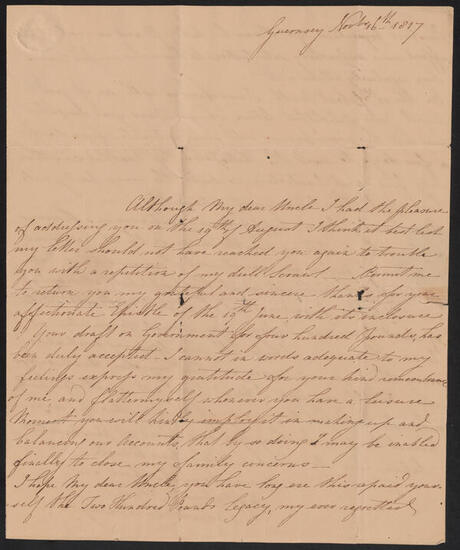 Guernsey Novbr 16th 1817
Although My dear Uncle I had the pleasure
of addressing you on the 19th of August I think it best lest
my letter should not have reached you again to trouble
you with a repetition of my dull Scrawl _ Permit me
to return you my grateful and sincere thanks for your
affectionate Epistle of the 10th June, with its inclosure
Your draft on Government for four hundred Pounds, has
been duly accepted. I cannot in words adequate to my
feelings express my gratitude for your kind remembrance
of me, and flatter myself whenever you have a leisure
Moment you will kindly employ it in making up and
balancing our Accounts, that by so doing I may be enabled
finally to close my family concerns _
I hope My dear Uncle, you have long ere this repaid your-
self the Two Hundred Pounds Legacy, my ever regretted